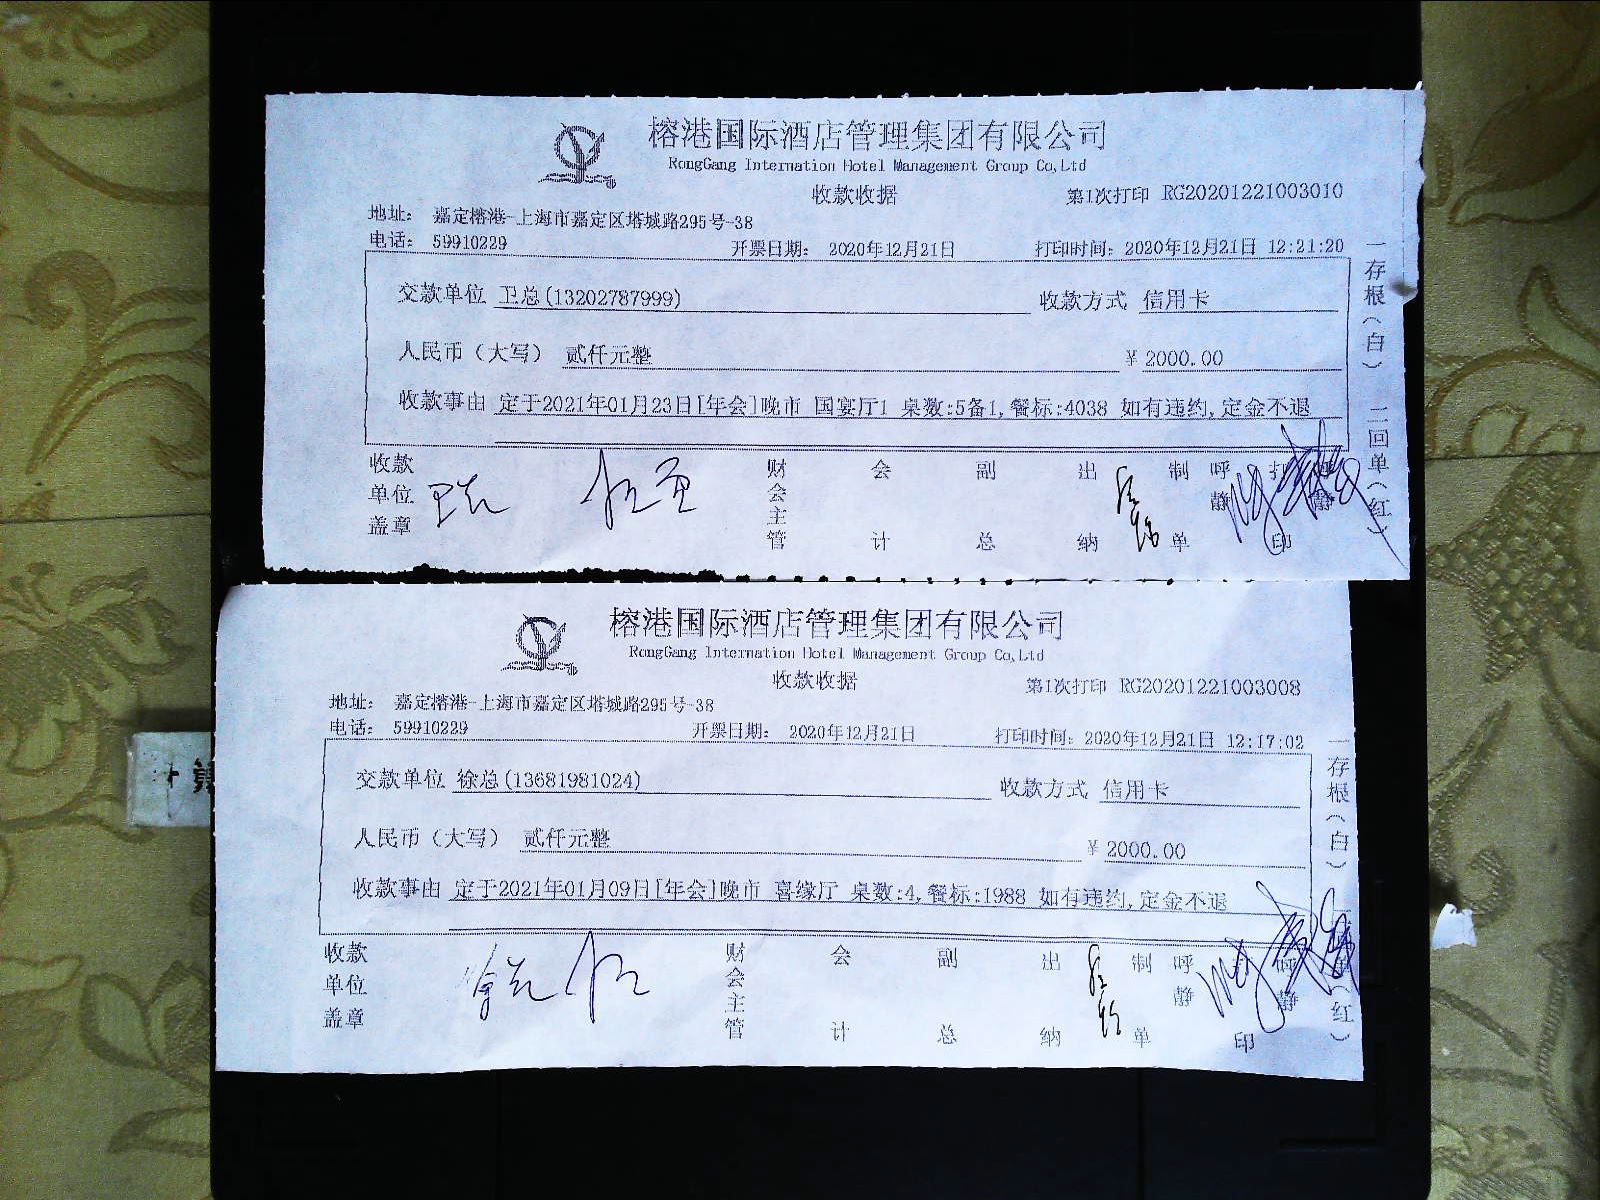 榕港国际酒店管理集团有限公司
RongGang Internation Hotel Management Group Co,Ltd
收款收据 第1次打印 RG20201221003010
地址： 嘉定榕港-上海市嘉定区塔城路295号-38
电话： 59910229 开票日期： 2020年12月21日 打印时间： 2020年12月21日 12:21:20
交款单位 卫总(13202787999) 收款方式 信用卡
人民币（大写） 贰仟元整 ￥ 2000.00
收款事由 定于2021年01月23日[年会]晚市 国宴厅1 桌数:5备1,餐标:4038 如有违约,定金不退
收款单位盖章 财会主管 会计 副总 出纳 制单 呼静 打印 呼静
一存根（白） 二回单（红）
榕港国际酒店管理集团有限公司
RongGang Internation Hotel Management Group Co,Ltd
收款收据 第1次打印 RG20201221003008
地址： 嘉定榕港-上海市嘉定区塔城路295号-38
电话： 59910229 开票日期： 2020年12月21日 打印时间： 2020年12月21日 12:17:02
交款单位 徐总(13681981024) 收款方式 信用卡
人民币（大写） 贰仟元整 ￥ 2000.00
收款事由 定于2021年01月09日[年会]晚市 喜缘厅 桌数:4,餐标:1988 如有违约,定金不退
收款单位盖章 财会主管 会计 副总 出纳 制单 呼静 印 呼静
一存根（白） （红）